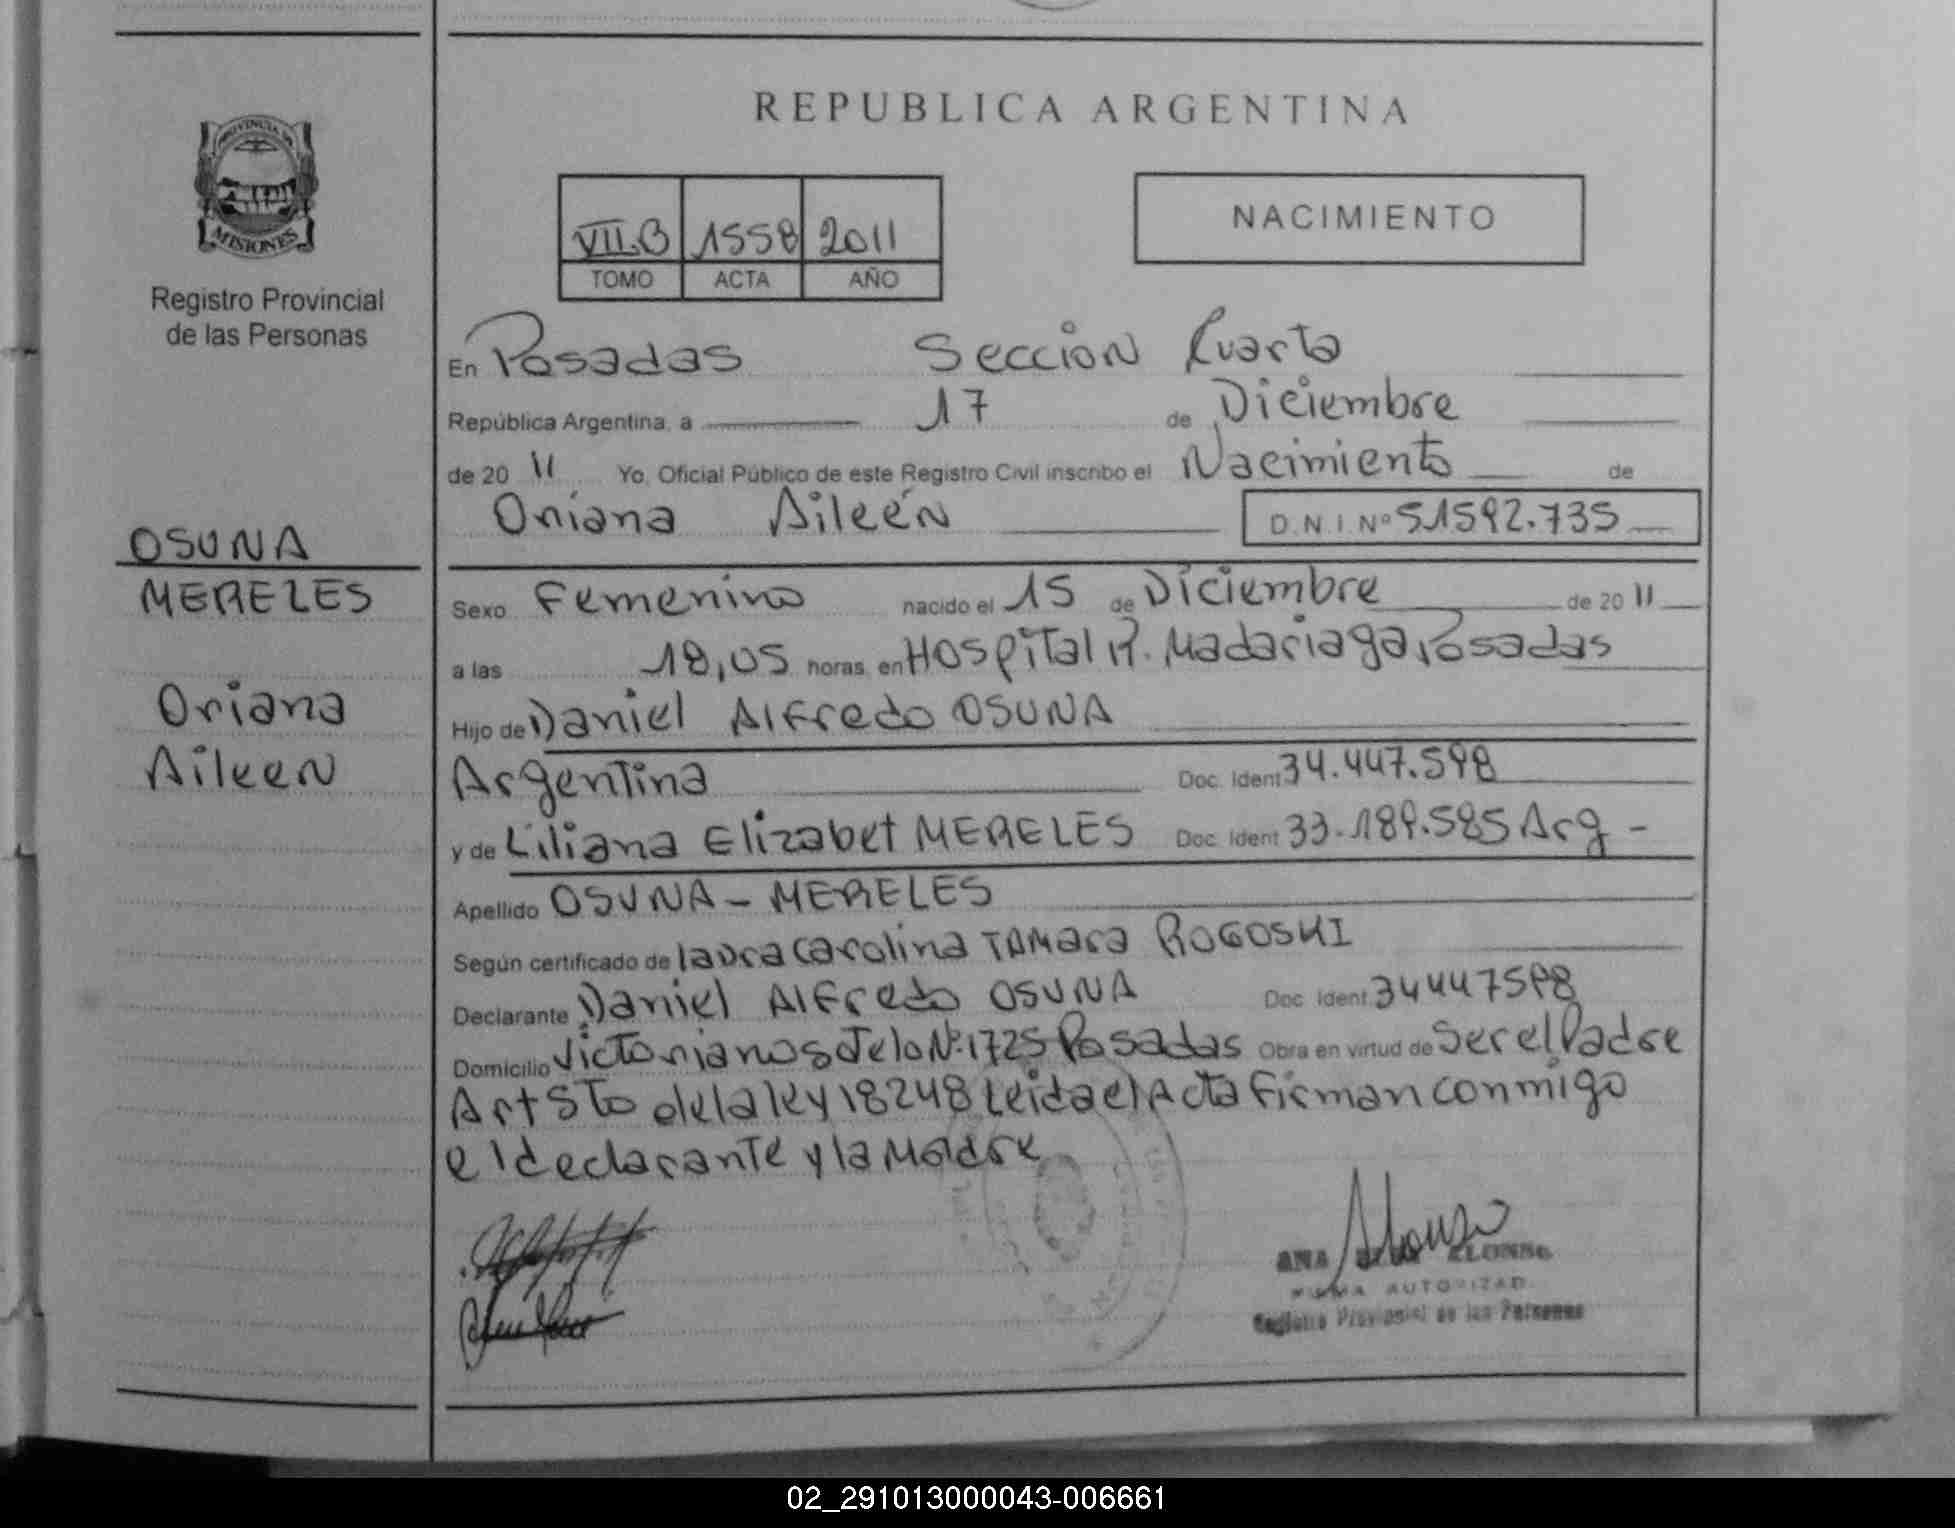 REPUBLICA ARGENTINA
PROVINCIA DE
MISIONES
Registro Provincial
de las Personas
VII.B 1558 2011
TOMO ACTA AÑO
NACIMIENTO
En Posadas Sección Cuarta
República Argentina, a 17 de Diciembre
de 20 11 Yo, Oficial Público de este Registro Civil inscribo el Nacimiento de
Oriana Aileén D.N.I. Nº 51592.735
OSUNA
MERELES
Oriana
Aileen
Sexo Femenino nacido el 15 de Diciembre de 20 11
a las 18,05 horas, en Hospital R. Madariaga, Posadas
Hijo de Daniel Alfredo OSUNA
Argentina Doc. Ident 34.447.598
y de Liliana Elizabet MERELES Doc. Ident 33.189.585 Arg -
Apellido OSUNA - MERELES
Según certificado de laura carolina TAMara ROGOSKI
Declarante Daniel Alfredo OSUNA Doc. Ident 34447598
Domicilio Nº 1725 Posadas Obra en virtud de Ser el Padre
Art 5to de la ley 18248 Leida el Acta firman conmigo
el declarante y la Madre
ANA ALONSO
FIRMA AUTORIZAD
Registro Provincial de las Personas
02_291013000043-006661